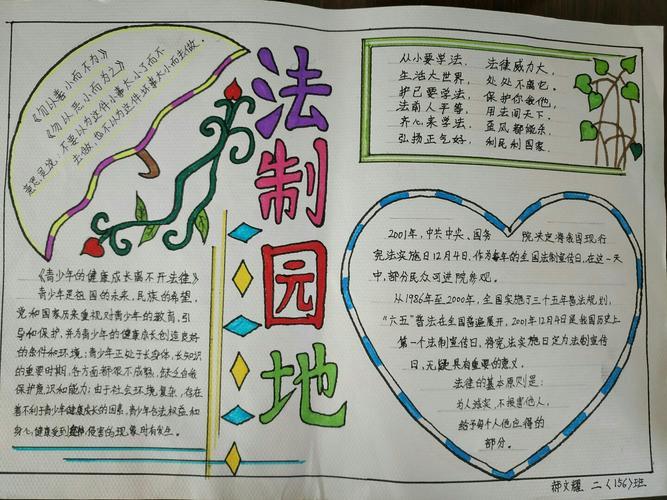 《勿以善小而不为》
《勿以恶小而为之》
意思是说：不要以为这件小事太小了而不
去做，也不以为这件坏事太小而去做。
法制园地
《青少年的健康成长离不开法律》
青少年是祖国的未来，民族的希望，
党和国家历来重视对青少年的教育，引
导和保护，并为青少年的健康成长创造良好
的条件和环境；青少年正处于长身体，长知识
的重要时期，各方面都很不成熟，缺乏自我
保护意识和能力；由于社会环境复杂，存在
着不利于青少年健康成长的因素，青少年合法权益和
身心健康受到侵害的现象时有发生。
从小要学法， 法律威力大，
生活大世界， 处处不离它。
护己要学法， 保护你我他，
法前人平等， 用法闯天下。
齐心来学法， 歪风都能杀，
弘扬正气好， 利民利国家。
2001年，中共中央、国务 院决定将我国现行
宪法实施日12月4日，作为每年的全国法制宣传日，在这一天
中，部分民众可进院参观。
从1986年至2000年，全国实施了三十五年普法规划，
“六五”普法在全国普遍展开，2001年12月4日是我国历史上
第一个法制宣传日，将宪法实施日定为法制宣传
日，无疑具有重要的意义。
法律的基本原则是：
为人诚实，不损害他人，
给予每个人他应得的
部分。
郝文耀 二〈156〉班